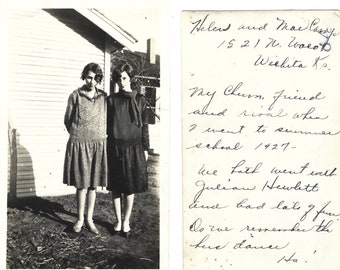 Helen and Mae
1521 N. Waco
Wichita Ks.
My Chum, friend
and rival when
I went to summer
school 1927-
We both went with
Julian Hewlett
and had lots of fun
Do we remember the
dance
Ha!